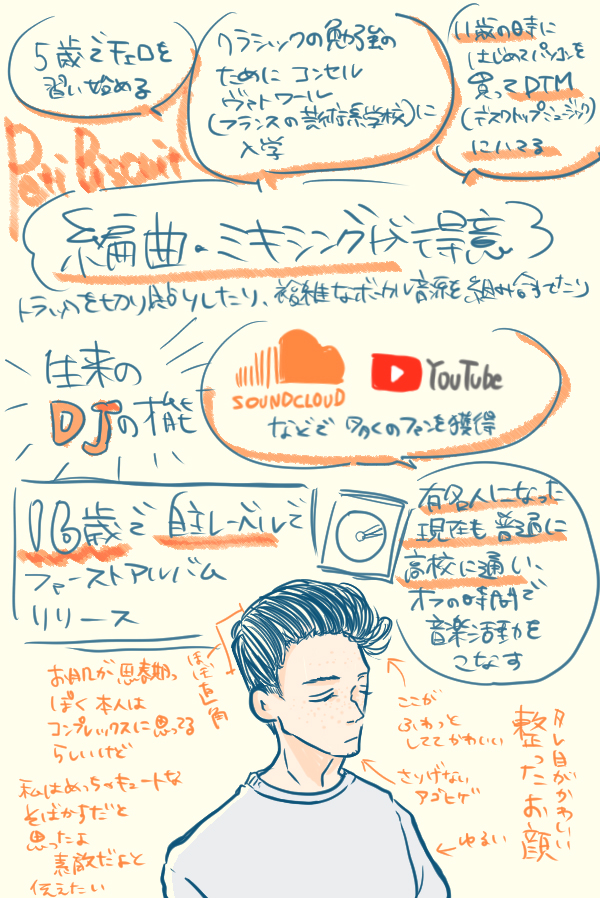 5歳でチェロを
習い始める
クラシックの勉強の
ために コンセル
ヴァトワール
(フランスの芸術系学校)に
入学
11歳の時に
はじめてパソコンを
買ってDTM
(デスクトップミュージック)
にハマる
Peti Biscuit
編曲・ミキシングが得意
トラックを切り貼りしたり、複雑なボーカル音源を組み合わせたり
往来の
DJの才能
SOUNDCLOUD
YouTube
などで 多くのファンを獲得
16歳で 自主レーベルで
ファーストアルバム
リリース
有名人になった
現在も普通に
高校に通い、
オフの時間で
音楽活動を
こなす
ほぼ直角
お肌が思春期っ
ぽく本人は
コンプレックスに思ってる
らしいけど
私はめっちゃキュートな
そばかすだと
思ったよ
素敵だよと
伝えたい
ここが
ふわっと
しててかわいい
さりげない
アゴヒゲ
ゆるい
タレ目がかわいい
整ったお顔